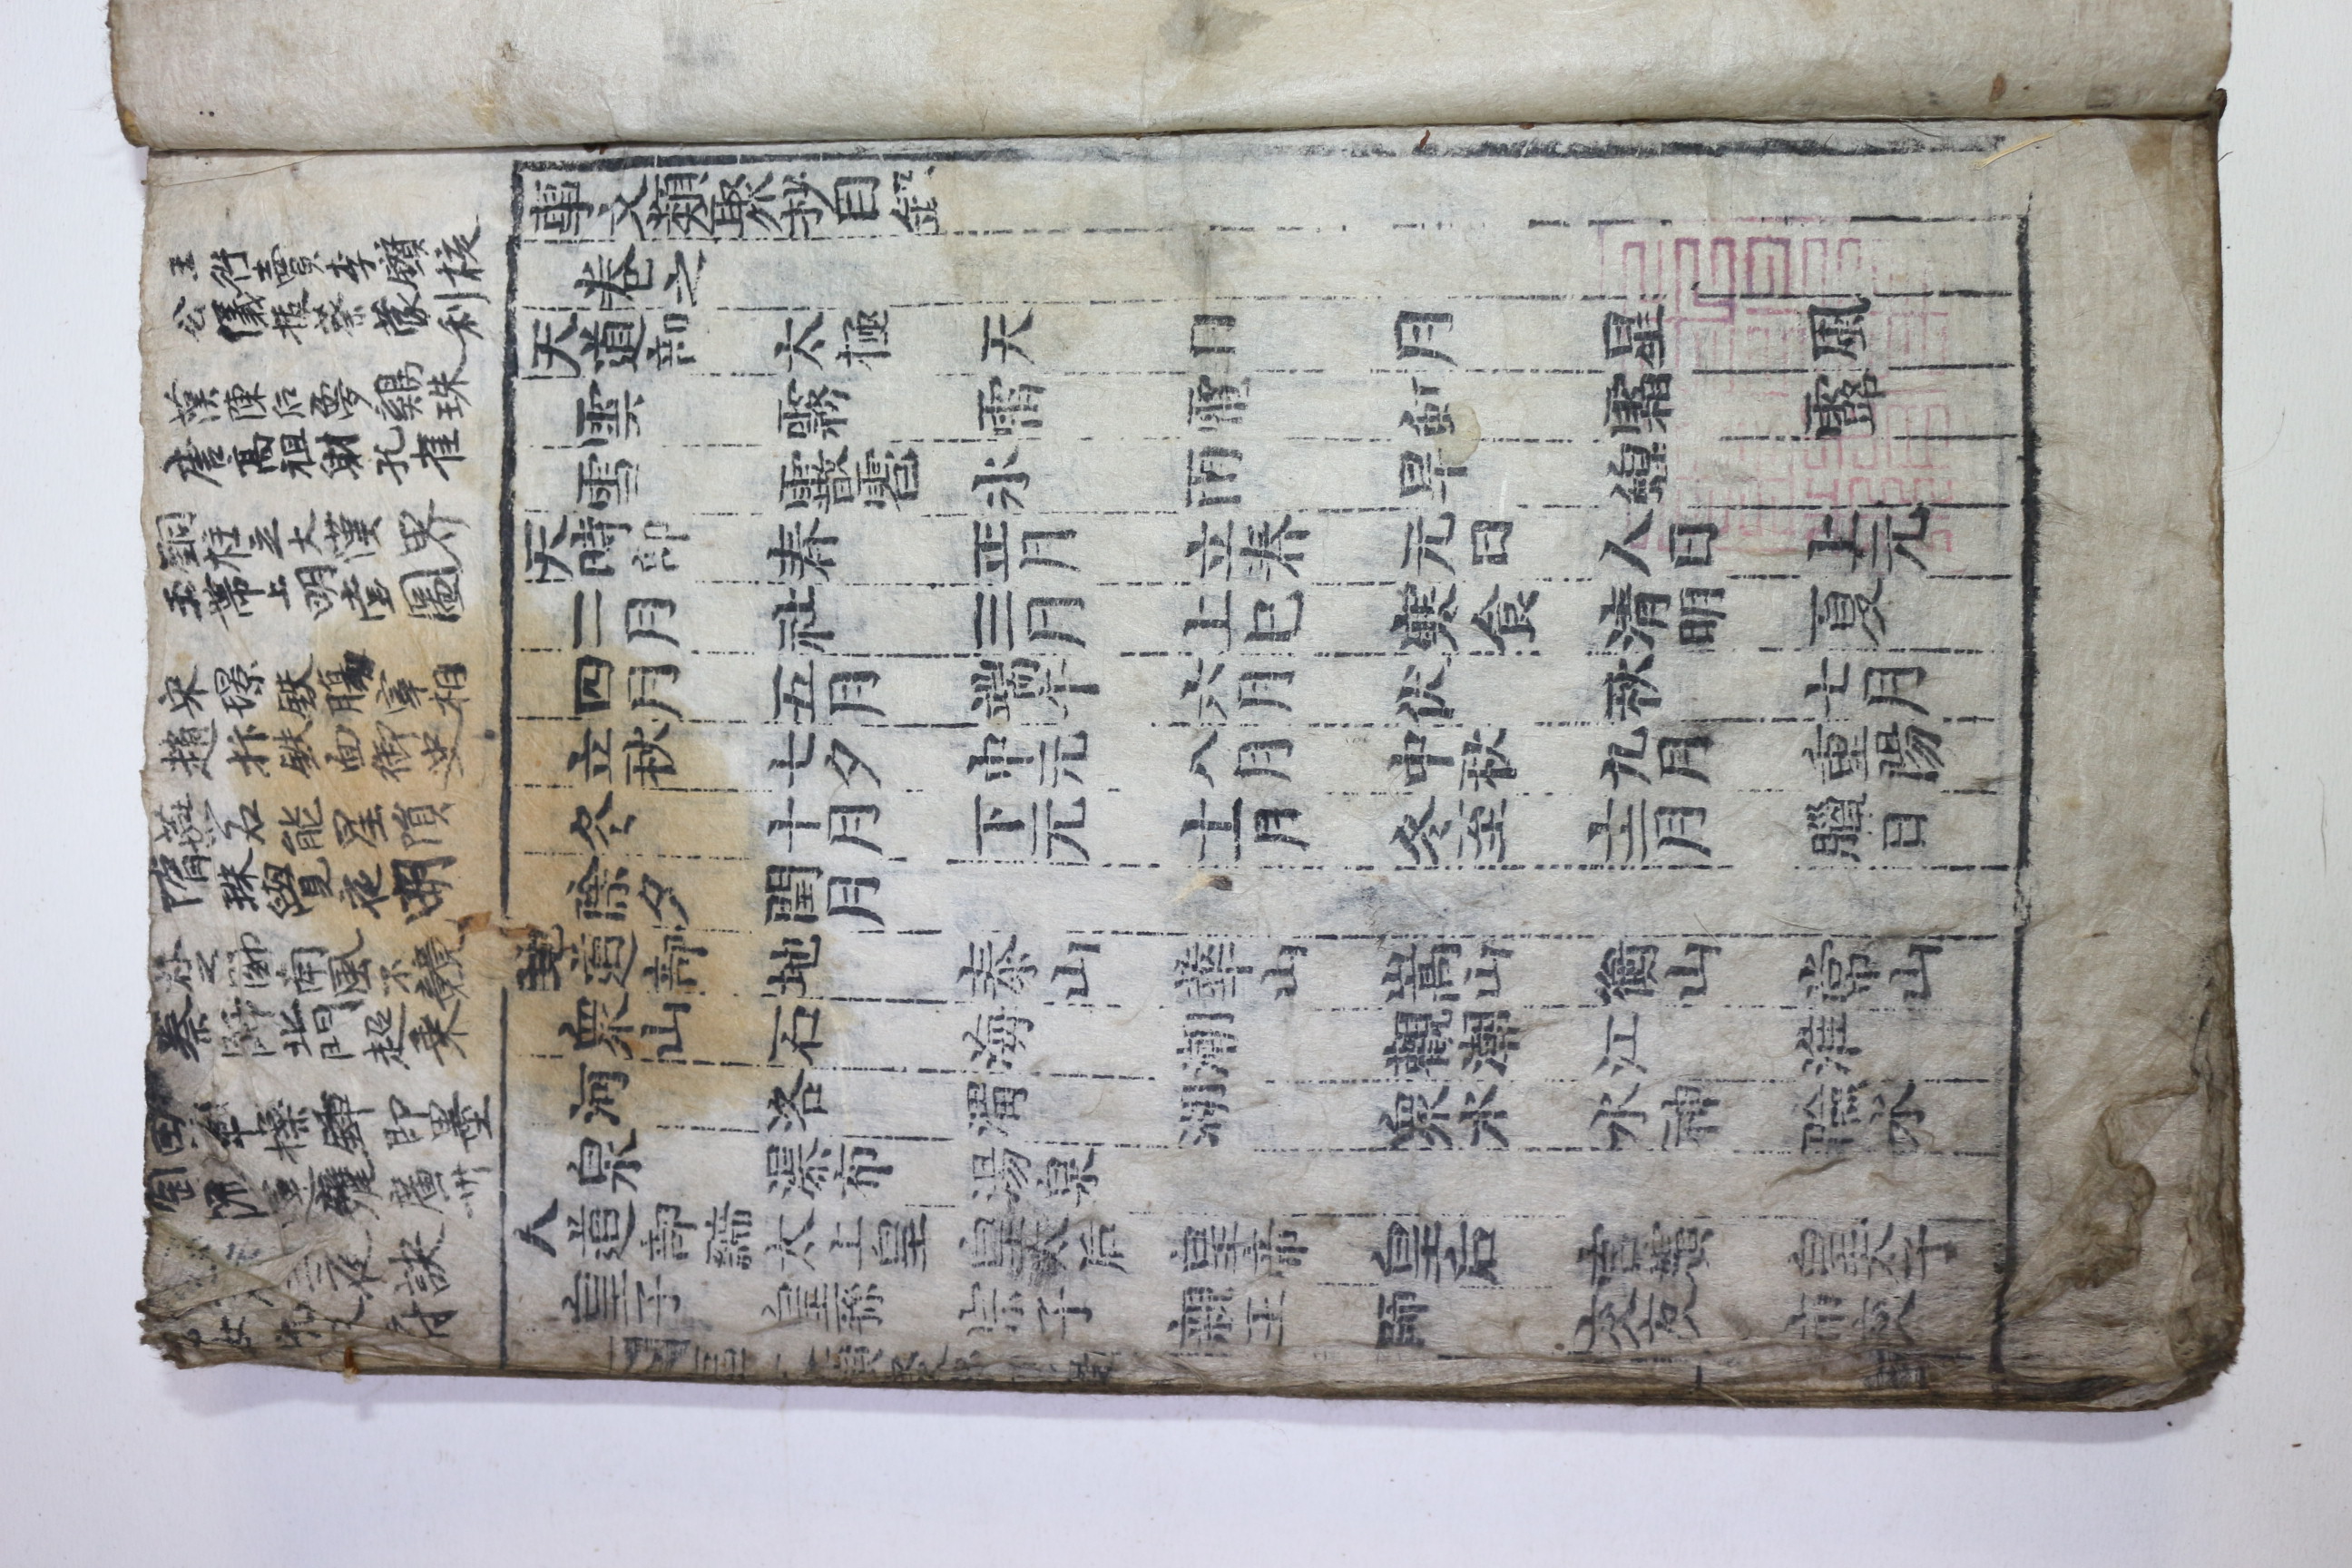 王衍賣李鑽核
公儀拔葵蒙利
漢陳后夢鷄珠
唐高祖射孔雀
銅柱立大漢界
玉帶上明堂圖
宋璟鉄膓宰相
趙抃鉄面御史
燕石能星隕
隋珠覺夜朗
楚之歸南風不競
秦師北門超乗
田單操鍤即墨
陶侃運甓廣州
事文類聚抄目錄
卷之
天道部 太極 天 日 月 星 風
雲 霧 雷 電 虹 霜 露
雪 霰雹 氷 雨 旱 蝗
天時部 春 正月 立春 元日 人日 上元
二月 社 三月 上巳 寒食 清明 夏
四月 五月 端午 六月 伏 秋 七月
立秋 七夕 中元 八月 中秋 九月 重陽
冬 十月 下元 十一月 冬至 十二月 臘日
除夕 閏月
地道部 地 泰山 華山 嵩山 衡山 常山
衆山 石 海 潮 觀潮 江 淮
河 洛 渭 湖 衆水 水神 險水
泉 瀑布 湯泉
人道部 諦 太上皇 皇太后 皇帝 皇后 宮嬪 皇太子
皇子 皇孫 宗子 親王 師 交友